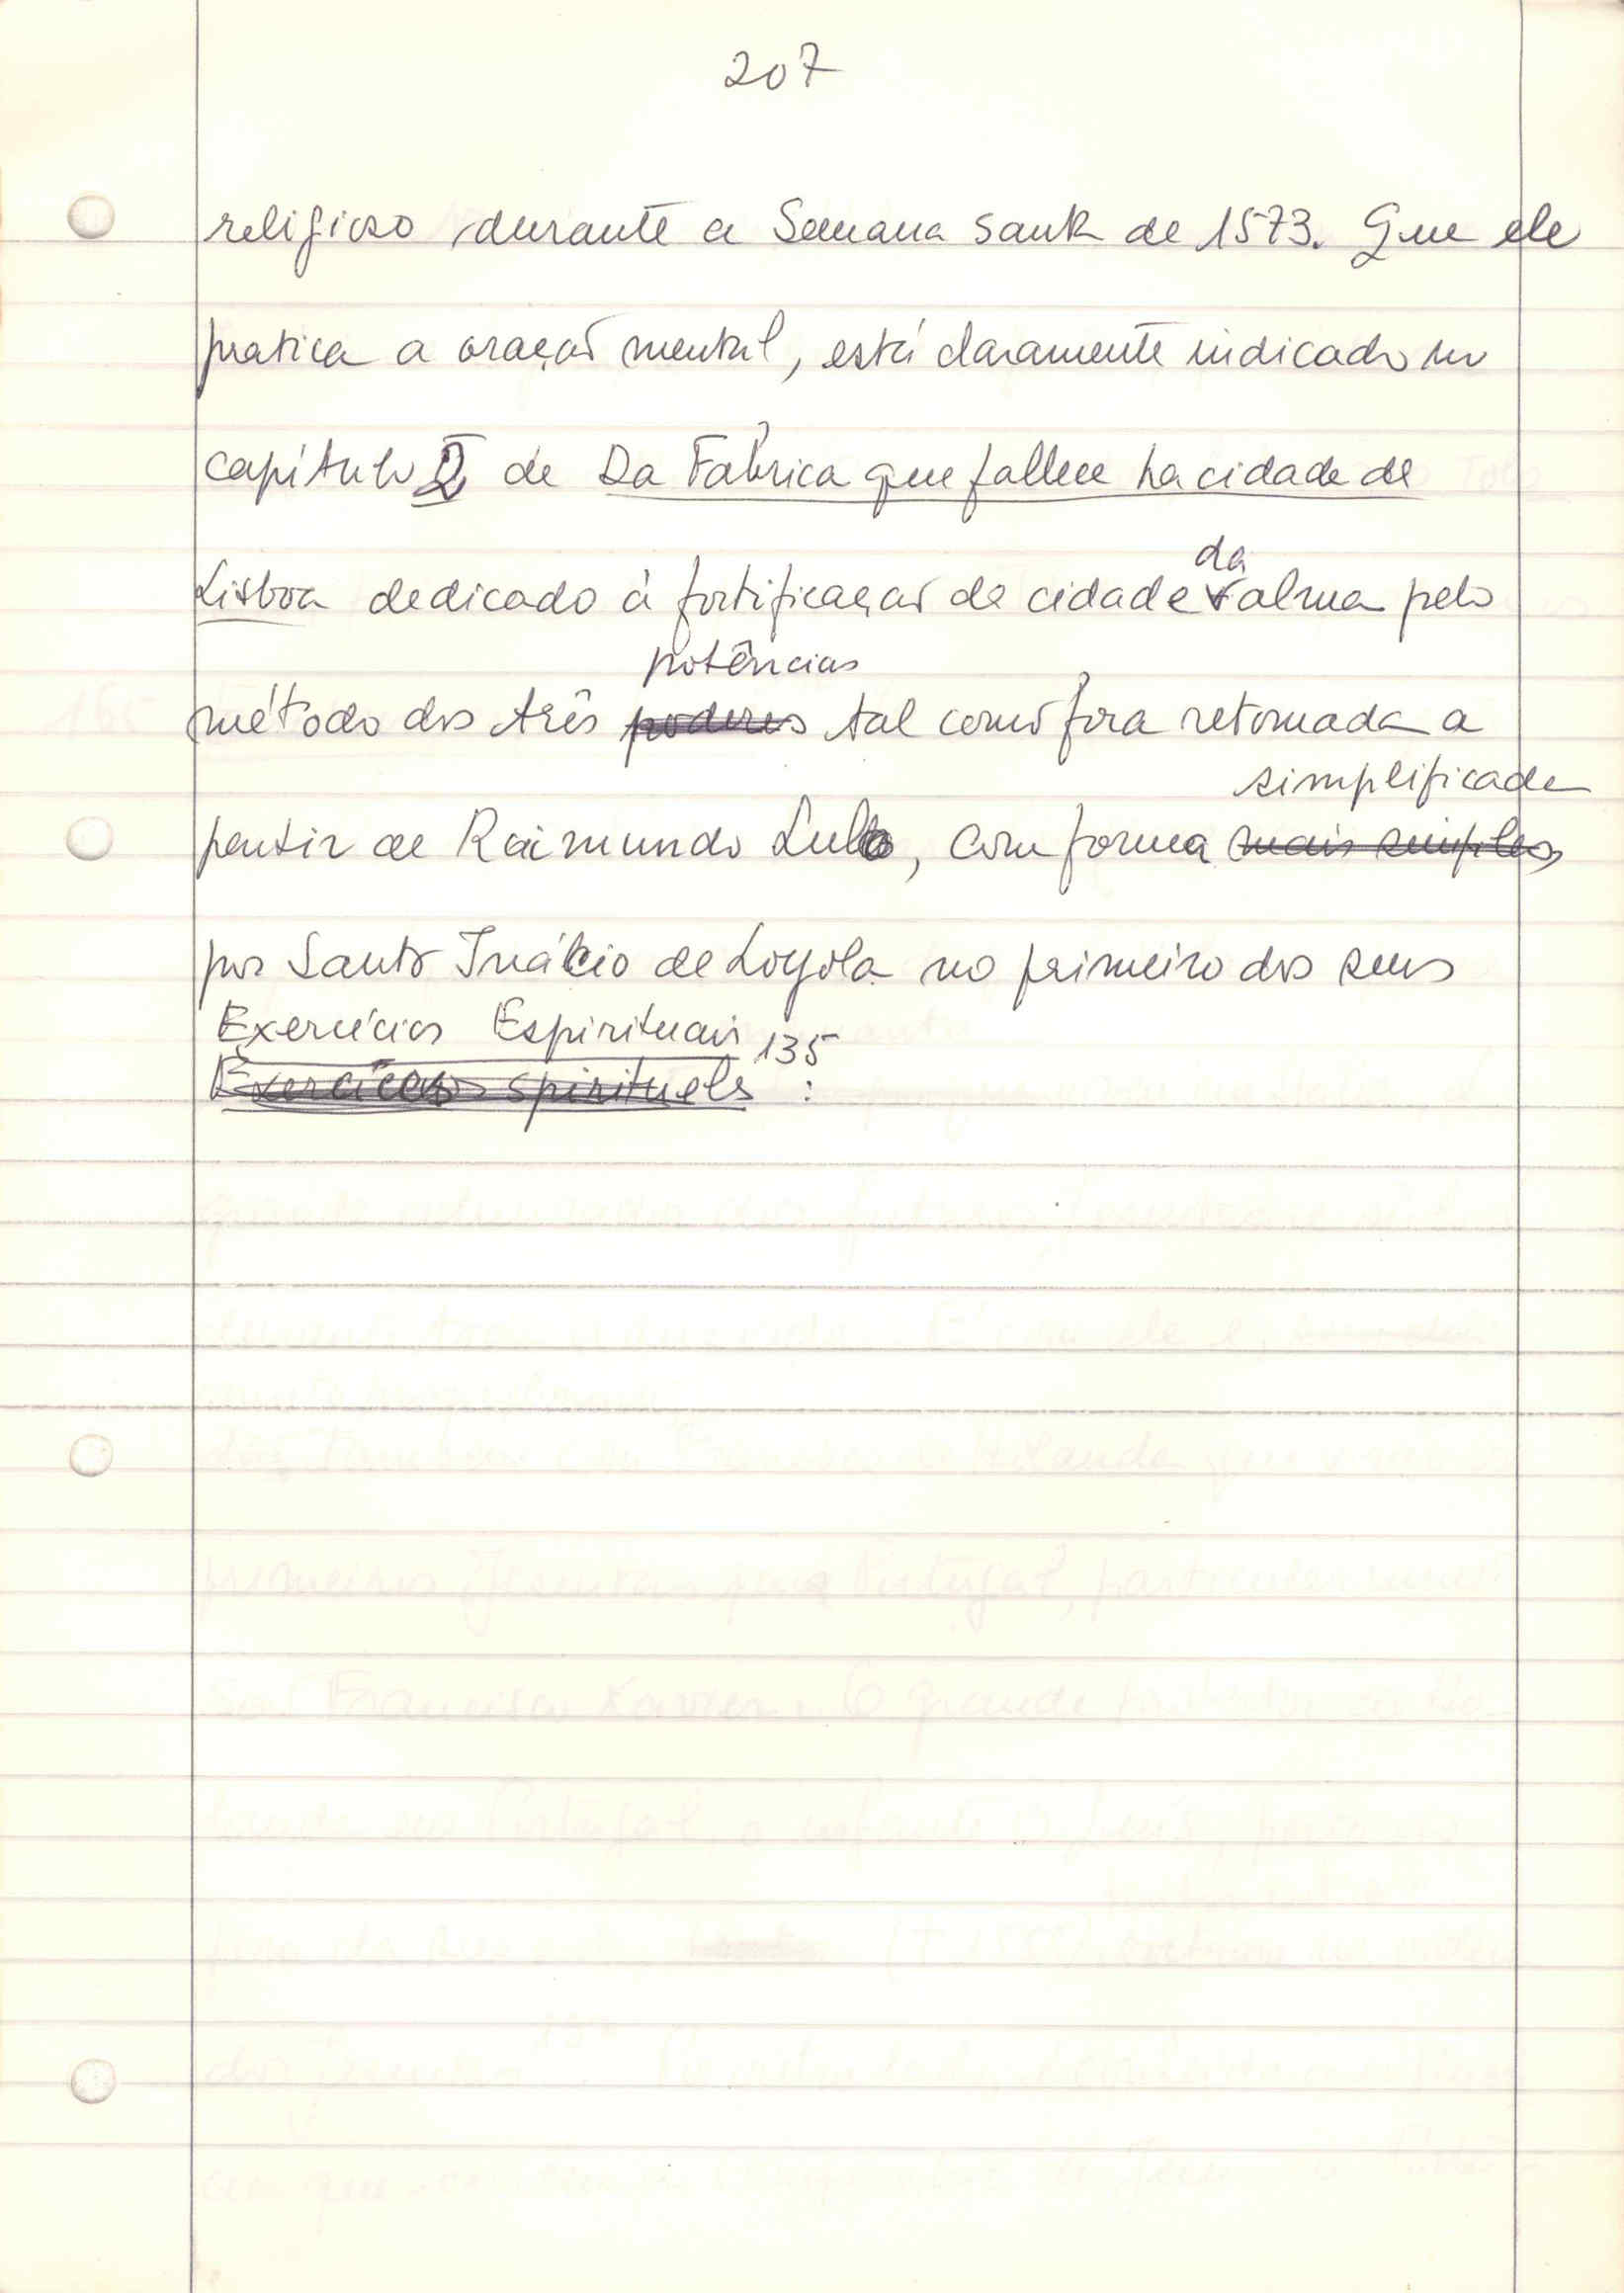 207
religioso, durante a Semana Santa de 1573. Que ele
pratica a oração mental, está claramente indicado no
capítulo 2 de Da Fábrica que fallece ha cidade de
da
Lisboa dedicado à fortificação da cidade alma pelo
potências
método dos três poderes tal como fora retomada a
simplificada
partir de Raimundo Lulo, com forma mais simples,
por Santo Inácio de Loyola no primeiro dos seus
Exercícios Espirituais 135
Exercices spirituels :